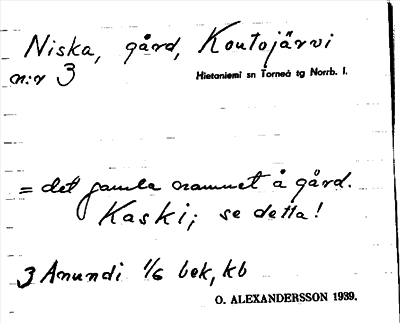 Niska, gård, Koutojärvi
n:r 3
Hietaniemi sn Torneå tg Norrb. l.
= det gamla namnet å gård.
Kaski; se detta!
3 Anundi 1/6 bek, kb
O. ALEXANDERSSON 1939.